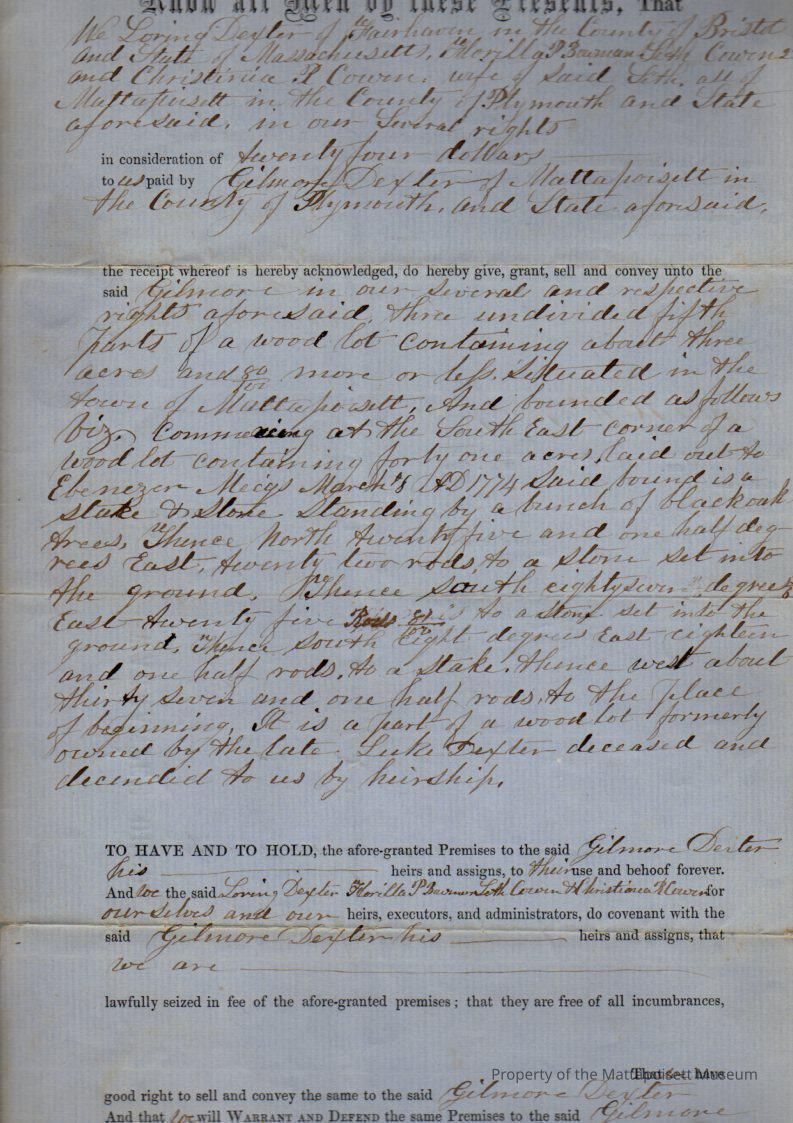 Know all Men by these Presents, That
We Loring Dexter of Fairhaven in the County of Bristol
and State of Massachusetts, Florilla P Bowman Seth Cowen
and Christinia P Cowen, wife of said Seth, all of
Mattapoisett in the County of Plymouth and State
aforesaid, in our Several rights
in consideration of twenty four dollars
to us paid by Gilmore Dexter of Mattapoisett in
the County of Plymouth, and State aforesaid,
the receipt whereof is hereby acknowledged, do hereby give, grant, sell and convey unto the
said Gilmore in our several and respective
rights aforesaid, three undivided fifth
parts of a wood lot containing about three
acres and 80/100 more or less. Situated in the
town of Mattapoisett, And bounded as follows
viz, Commencing at the South East corner of a
wood lot containing forty one acres, laid out to
Ebenezer Megs March 8 AD 1774 Said bound is a
stake & Stone Standing by a bunch of black oak
trees, Thence North twenty five and one half deg-
rees East, twenty two rods, to a stone set into
the ground, Thence south eighty seven degrees
East twenty five Rods to a Stone set into the
ground, Thence South Eight degrees East eighteen
and one half rods, to a stake, thence west about
thirty seven and one half rods, to the place
of beginning, It is a part of a wood lot formerly
owned by the late Luke Dexter deceased and
decended to us by heirship.
TO HAVE AND TO HOLD, the afore-granted Premises to the said Gilmore Dexter
his heirs and assigns, to their use and behoof forever.
And we the said Loring Dexter Florilla P Bowman Seth Cowen & Christinia P Cowen for
ourselves and our heirs, executors, and administrators, do covenant with the
said Gilmore Dexter his heirs and assigns, that
we are
lawfully seized in fee of the afore-granted premises; that they are free of all incumbrances,
That we have
Property of the Mattapoisett Museum
good right to sell and convey the same to the said Gilmore Dexter
And that we will WARRANT AND DEFEND the same Premises to the said Gilmore